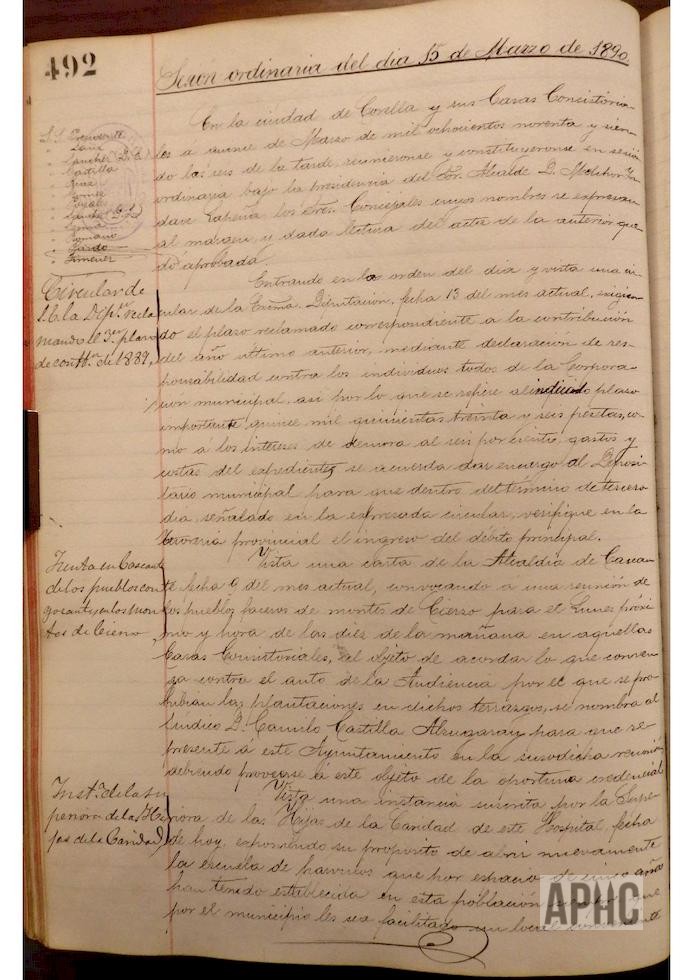 492
Sesión ordinaria del dia 15 de Marzo de 1890.
S.S. Presidente
" Sanchez (D. E.)
" Castilla
" Ruiz
" Gomez
" Rosales
" Sanchez (D. S.)
" Romano
" Garde
" Jimenez
En la ciudad de Corella y sus Casas Consistoria-
les a quince de Marzo de mil ochocientos noventa y sien-
do las seis de la tarde, reunieronse y constituyeronse en sesión
ordinaria bajo la presidencia del Sr. Alcalde D. Melchor
los Sres. Concejales cuyos nombres se expresan
al margen, y dada lectura del acta de la anterior que-
dó aprobada.
Circular de
S. E. la Dipn. recla
mando el 3er. plazo
de contn. de 1889.
Entrando en la orden del dia y vista una cir
cular de la Excma. Diputacion, fecha 13 del mes actual, exigien
do el plazo reclamado correspondiente a la contribución
del año último anterior, mediante declaracion de res-
ponsabilidad contra los individuos todos de la Corpora-
cion municipal, asi por lo que se refiere al indicado plazo
importante quince mil quinientas treinta y seis pesetas, co-
mo a los intereses de demora al seis por ciento, gastos y
costas del expediente, se acuerda dar encargo al Deposi-
tario municipal para que dentro del término de tercero
dia, señalado en la expresada circular, verifique en la
Tesoreria provincial el ingreso del débito principal.
Junta en Cascante
de los pueblos con
gozantes en los mon
tes de Cierzo
Vista una carta de la Alcaldia de Cascan
te fecha 9 del mes actual, convocando a una reunión de
los pueblos faceros de montes de Cierzo para el Lunes próxi
mo y hora de las diez de la mañana en aquellas
Casas Consistoriales, al objeto de acordar lo que conven
ga contra el auto de la Audiencia por el que se pro-
hibian las plantaciones en dichos terrazgos, se nombra al
Síndico D. Camilo Castilla Alzugaray para que re-
presente á este Ayuntamiento en la susodicha reunión
debiendo proveerse á este objeto de la oportuna credencial
Insta. de la Su
periora de las Hi
jas de la Caridad
Vista una instancia suscrita por la Supe-
riora de las Hijas de la Caridad de este Hospital, fecha
de hoy, exponiendo su proposito de abrir nuevamente
la escuela de parvulos que por espacio de cinco años
han tenido establecida en esta población siempre que
por el municipio les sea facilitado un local conveniente
APHC